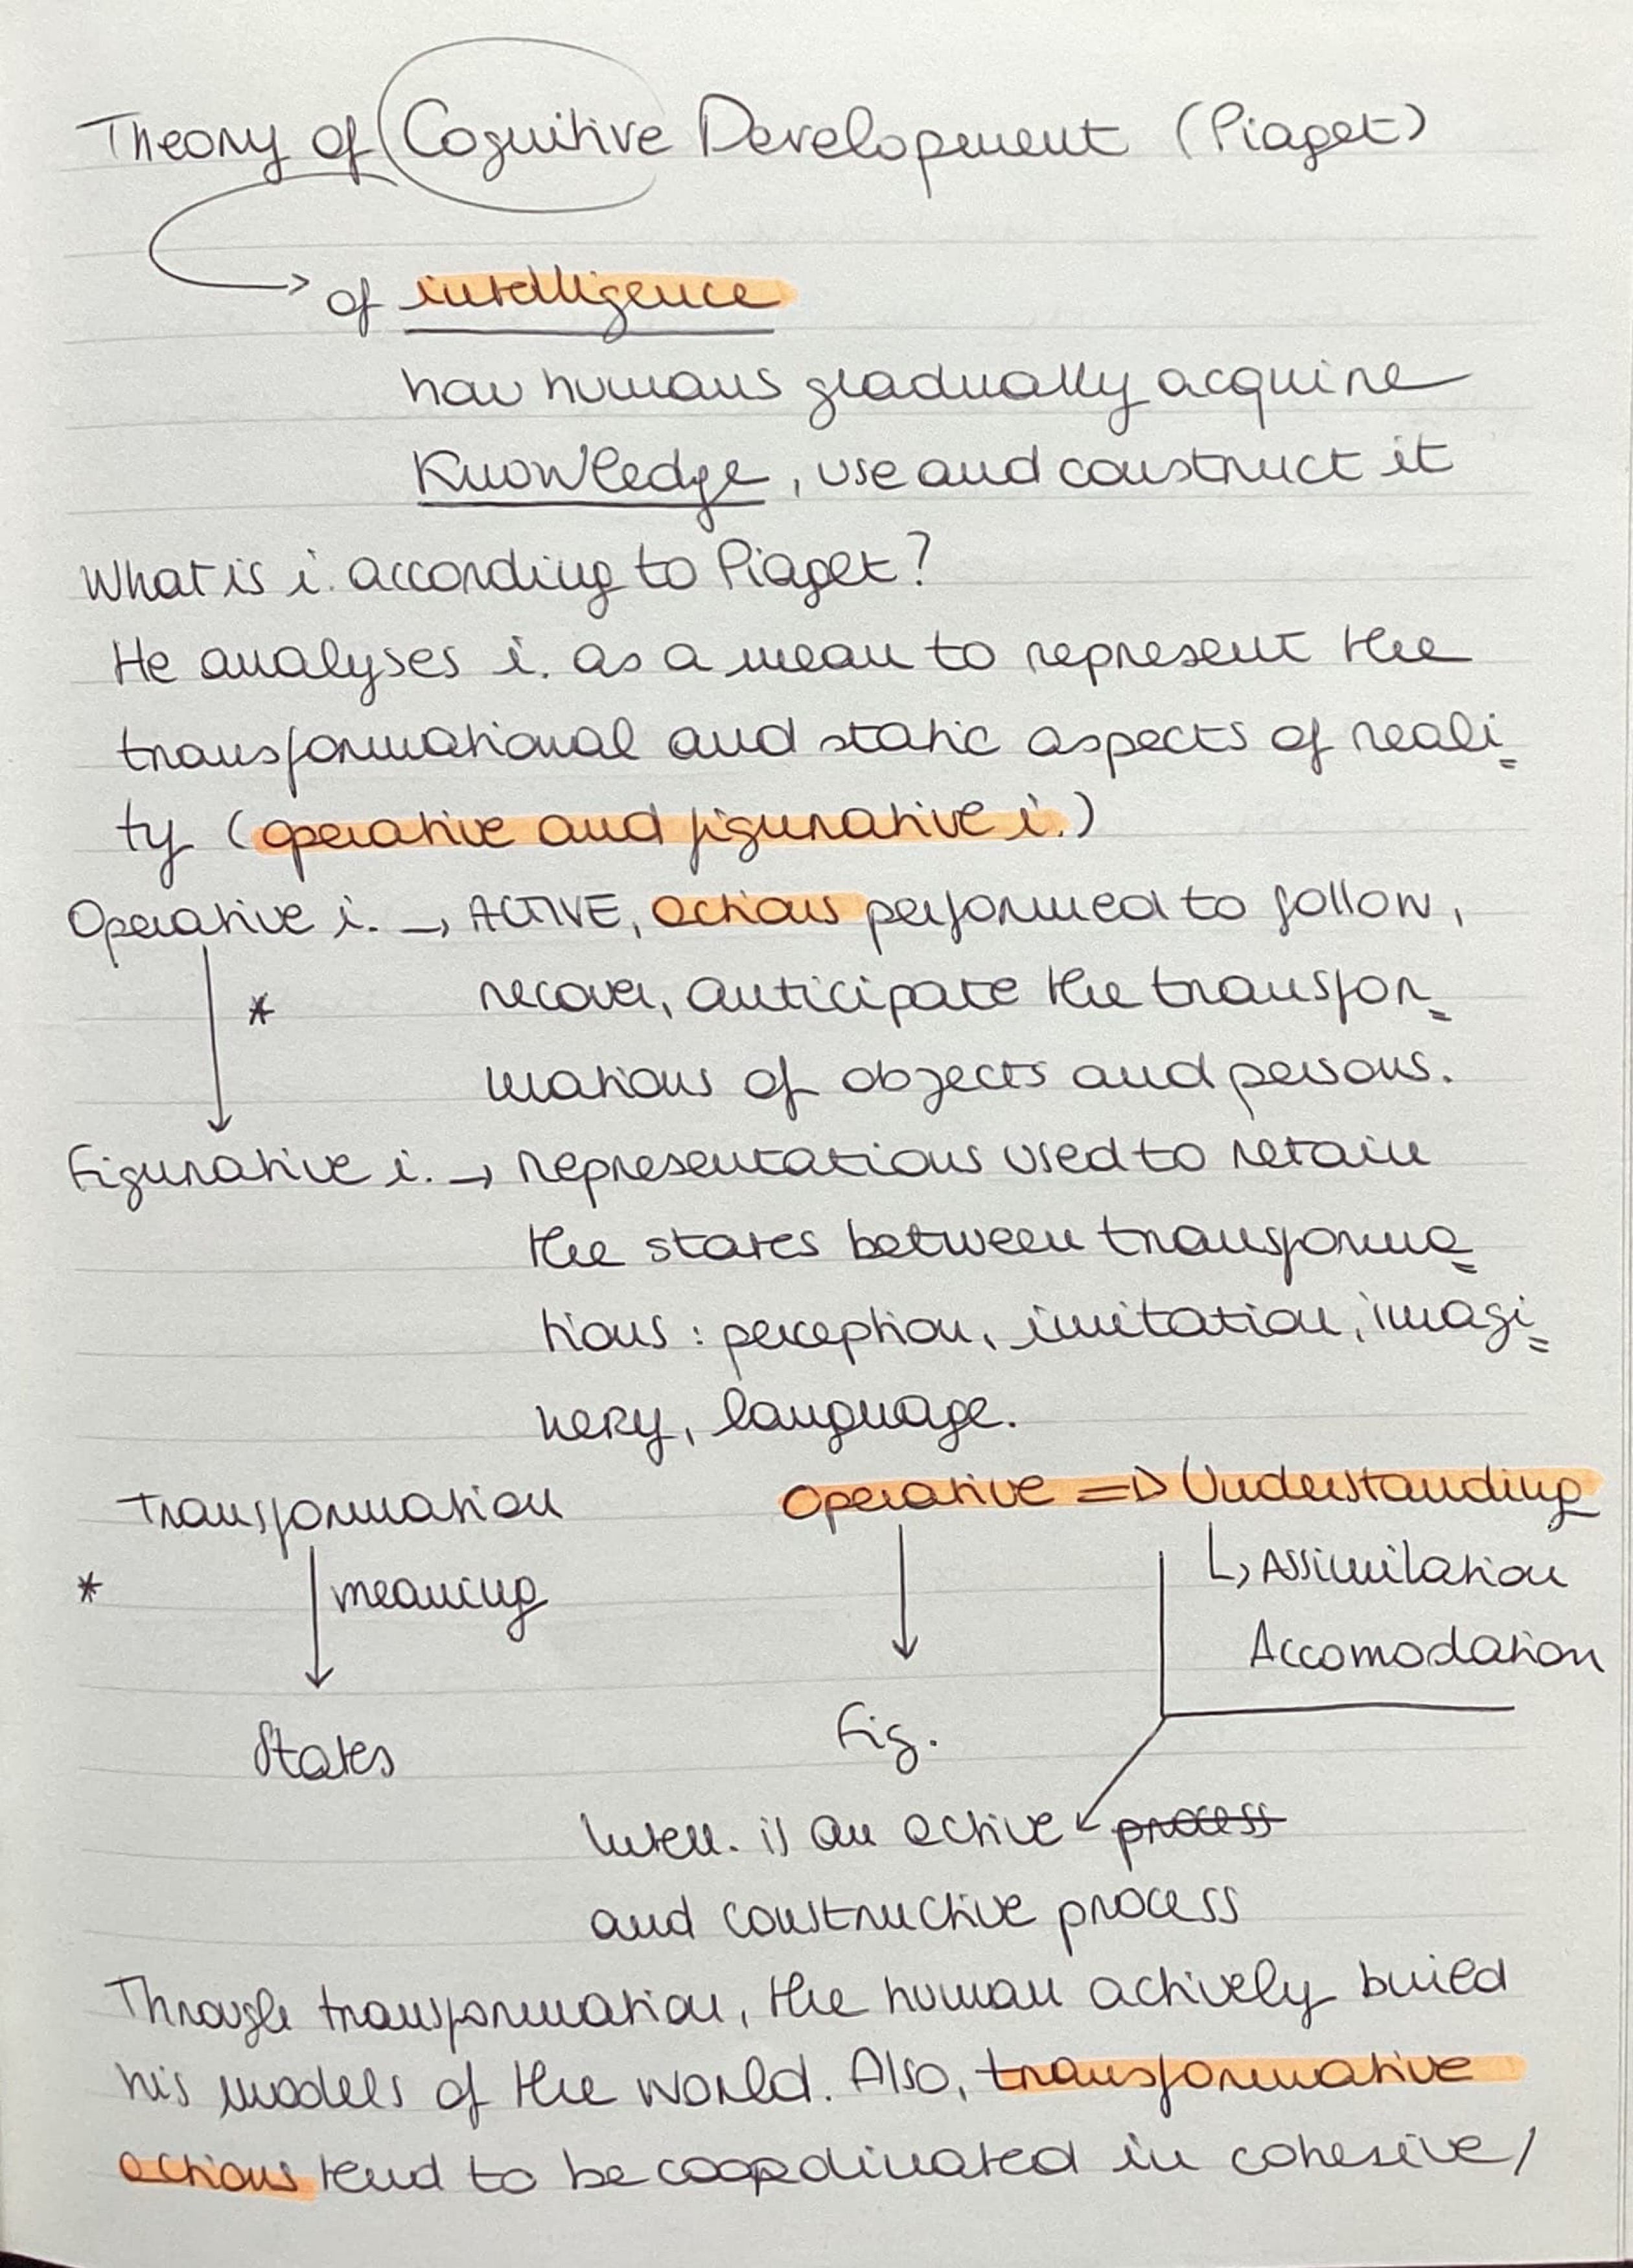 Theory of Cognitive Development (Piaget)
→ of intelligence
how humans gradually acquire
Knowledge, use and construct it
What is i. according to Piaget?
He analyses i. as a mean to represent the
transformational and static aspects of reali=
ty (operative and figurative i.)
Operative i. → ACTIVE, actions performed to follow,
* recover, anticipate the transfor=
mations of objects and persons.
Figurative i. → representations used to retain
the states between transforma=
tions: perception, imitation, imagi=
nery, language.
Transformation Operative => Understanding
* meaning ↳ Assimilation
Accomodation
States Fig.
Intell. is an active process
and constructive process
Through transformation, the human actively build
his models of the world. Also, transformative
actions tend to be coordinated in cohesive/